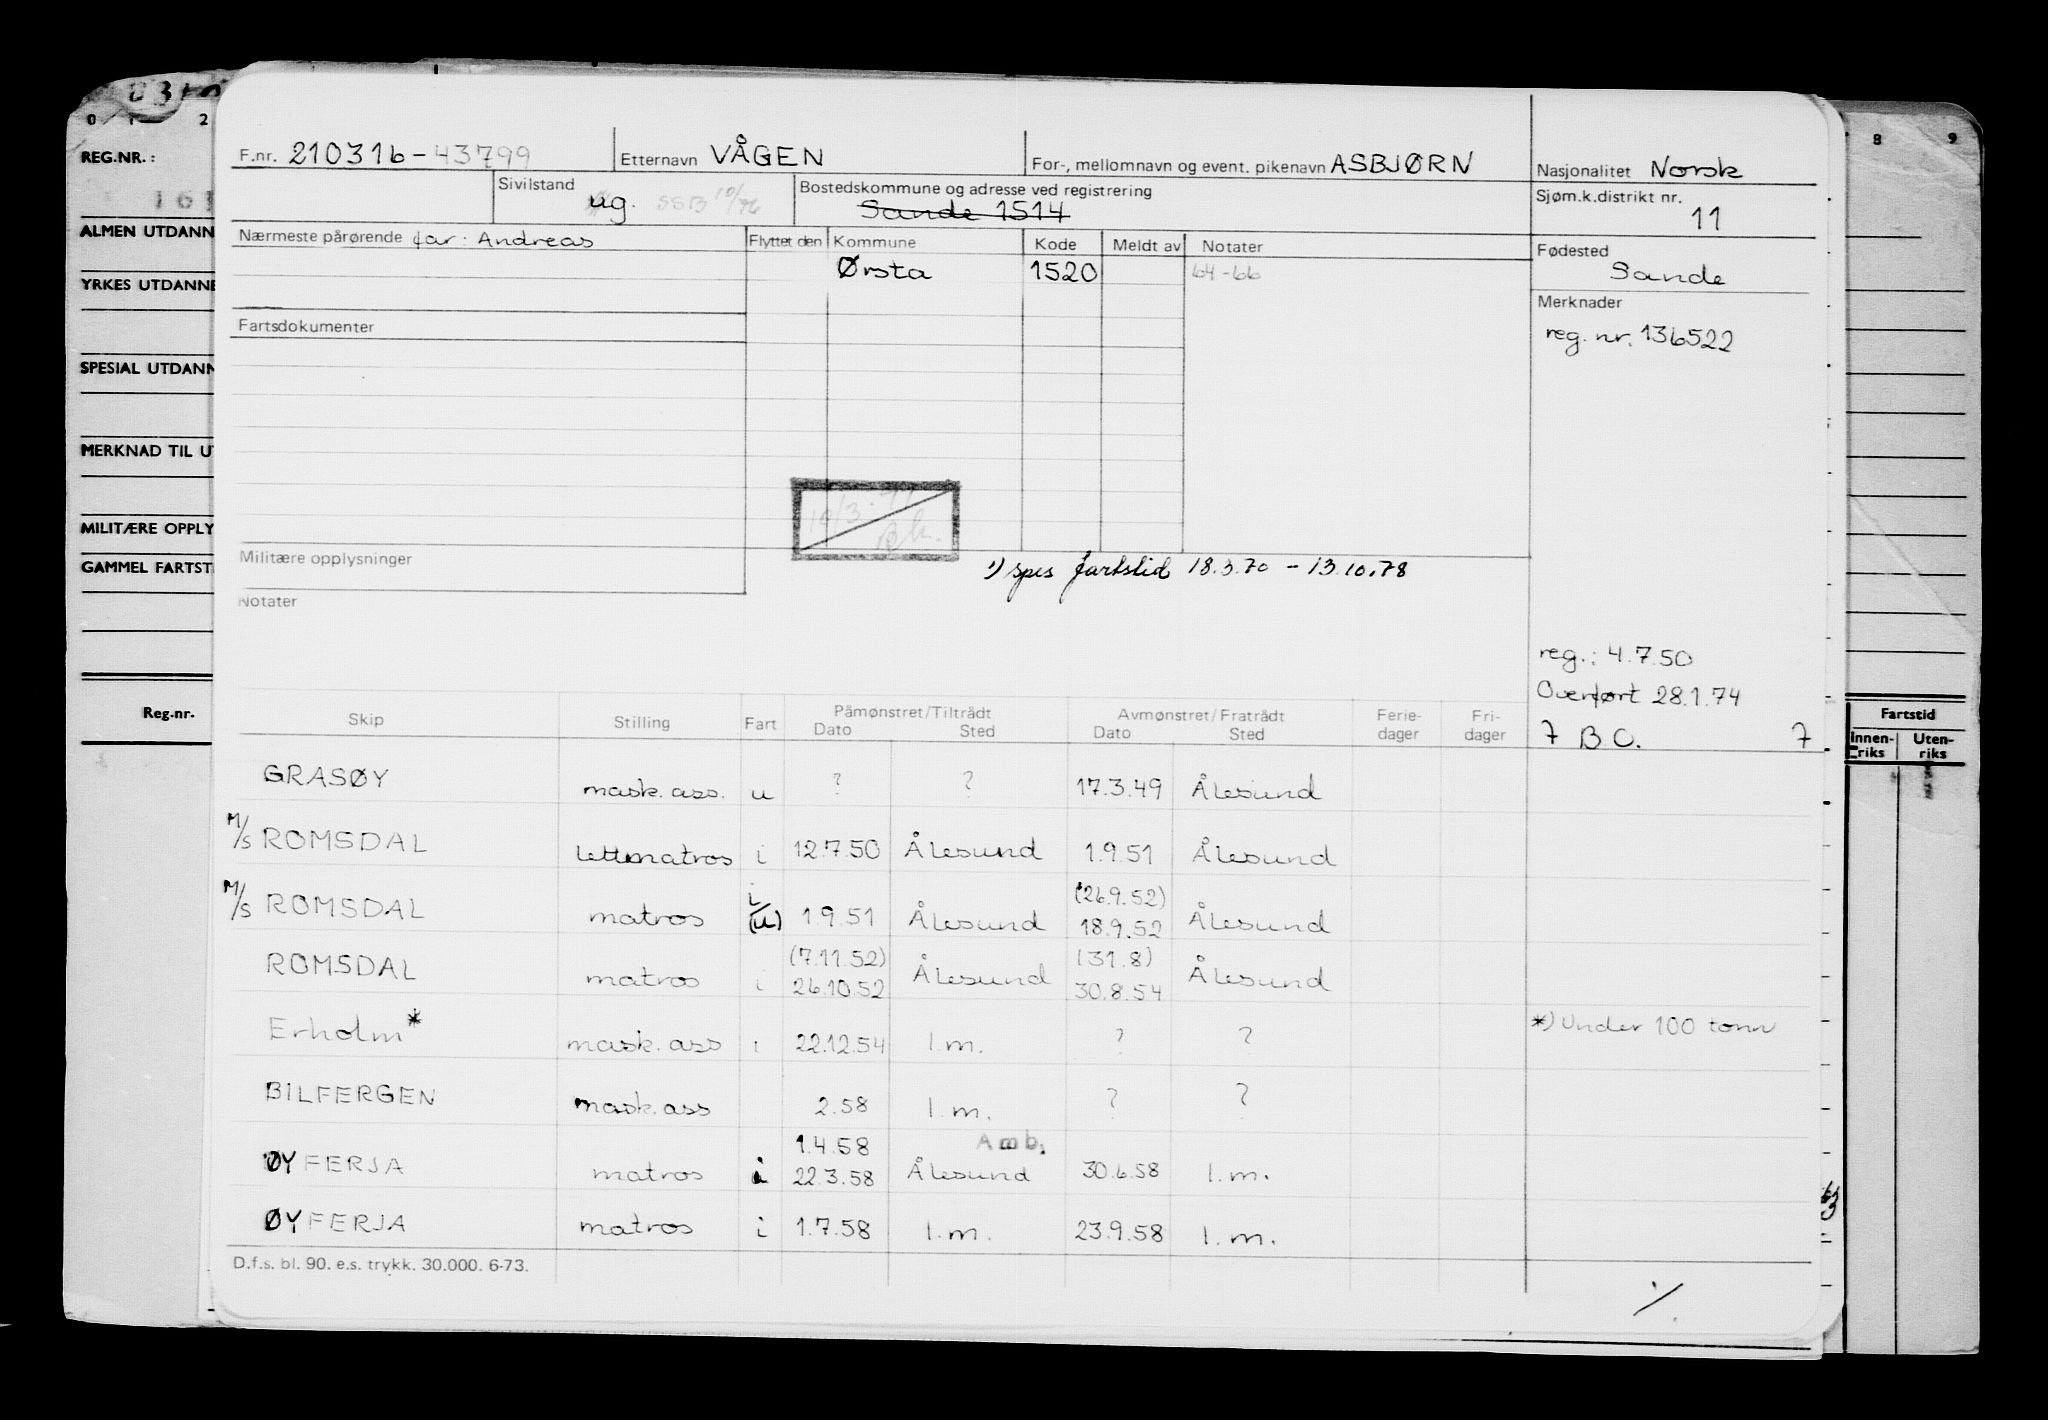 0 1 2 8 9
REG.NR.:
F.nr. 210316-43799 Etternavn VÅGEN For-, mellomnavn og event. pikenavn ASBJØRN Nasjonalitet Norsk
Sivilstand ug. SSB 10/76 Bostedskommune og adresse ved registrering Sjøm.k.distrikt nr.
Sande 1514 11
ALMEN UTDANN
Nærmeste pårørende far: Andreas Flyttet den Kommune Kode Meldt av Notater Fødested
Ørsta 1520 64-66 Sande
YRKES UTDANNE
Merknader
Fartsdokumenter reg. nr. 136522
SPESIAL UTDANN
MERKNAD TIL U
MILITÆRE OPPLY
GAMMEL FARTST
Militære opplysninger 1) spes fartstid 18.3.70 - 13.10.78
Notater
reg.: 4.7.50
Overført 28.1.74
7 B O. 7
Reg.nr. Skip Stilling Fart Påmønstret/Tiltrådt Avmønstret/Fratrådt Ferie- Fri- Fartstid
Dato Sted Dato Sted dager dager Innen- Uten-
riks riks
GRASØY mask. ass. u ? ? 17.3.49 Ålesund
M/S ROMSDAL lettmatros i 12.7.50 Ålesund 1.9.51 Ålesund
M/S ROMSDAL matros i/(u) 1.9.51 Ålesund (26.9.52) 18.9.52 Ålesund
ROMSDAL matros i (7.11.52) 26.10.52 Ålesund (31.8) 30.8.54 Ålesund
Erholm* mask. ass i 22.12.54 l.m. ? ? *) Under 100 tonn
BILFERGEN mask. ass 2.58 l.m. ? ?
ØYFERJA matros i 1.4.58 22.3.58 Amb. Ålesund 30.6.58 l.m.
ØYFERJA matros i 1.7.58 l.m. 23.9.58 l.m.
D.f.s. bl. 90. e.s. trykk. 30.000. 6-73.